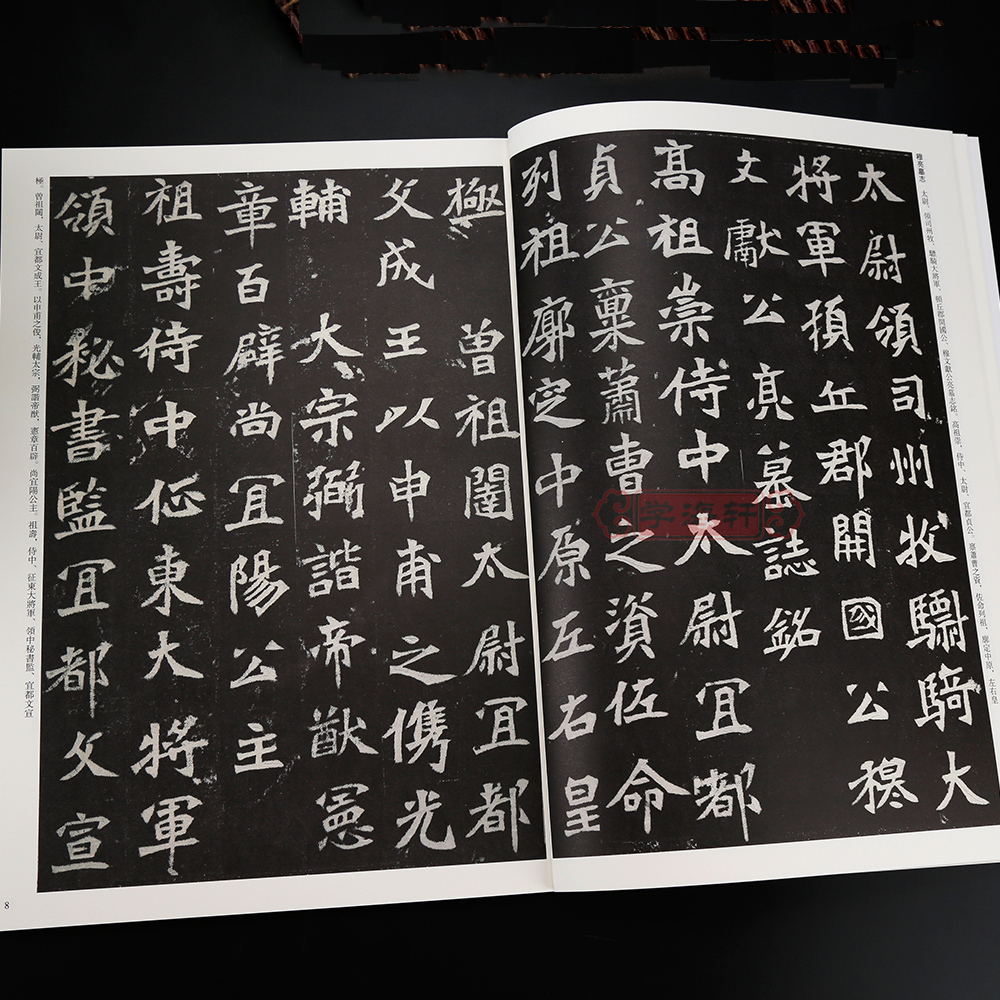 穆亮墓志　太尉、領司州牧、驃騎大將軍、頓丘郡開國公、穆文獻公亮墓志銘。高祖崇、侍中、太尉、宜都貞公。稟蕭曹之資、佐命列祖、廓定中原、左右皇
太尉領司州牧驃騎大
將軍頊丘郡開國公穆
文獻公亮墓誌銘
高祖崇侍中太尉宜都
貞公稟蕭曹之資佐命
列祖廓定中原左右皇
極　曾祖闥太尉宜都
文成王以申甫之儁光
輔　大宗弼諧帝猷憲
章百辟尚宜陽公主
祖壽侍中征東大將軍
領中秘書監宜都文宣
極。曾祖闥、太尉、宜都文成王。以申甫之俊、光輔太宗、弼諧帝猷、憲章百辟。尚宜陽公主。祖壽、侍中、征東大將軍、領中秘書監、宜都文宣
8
学海轩